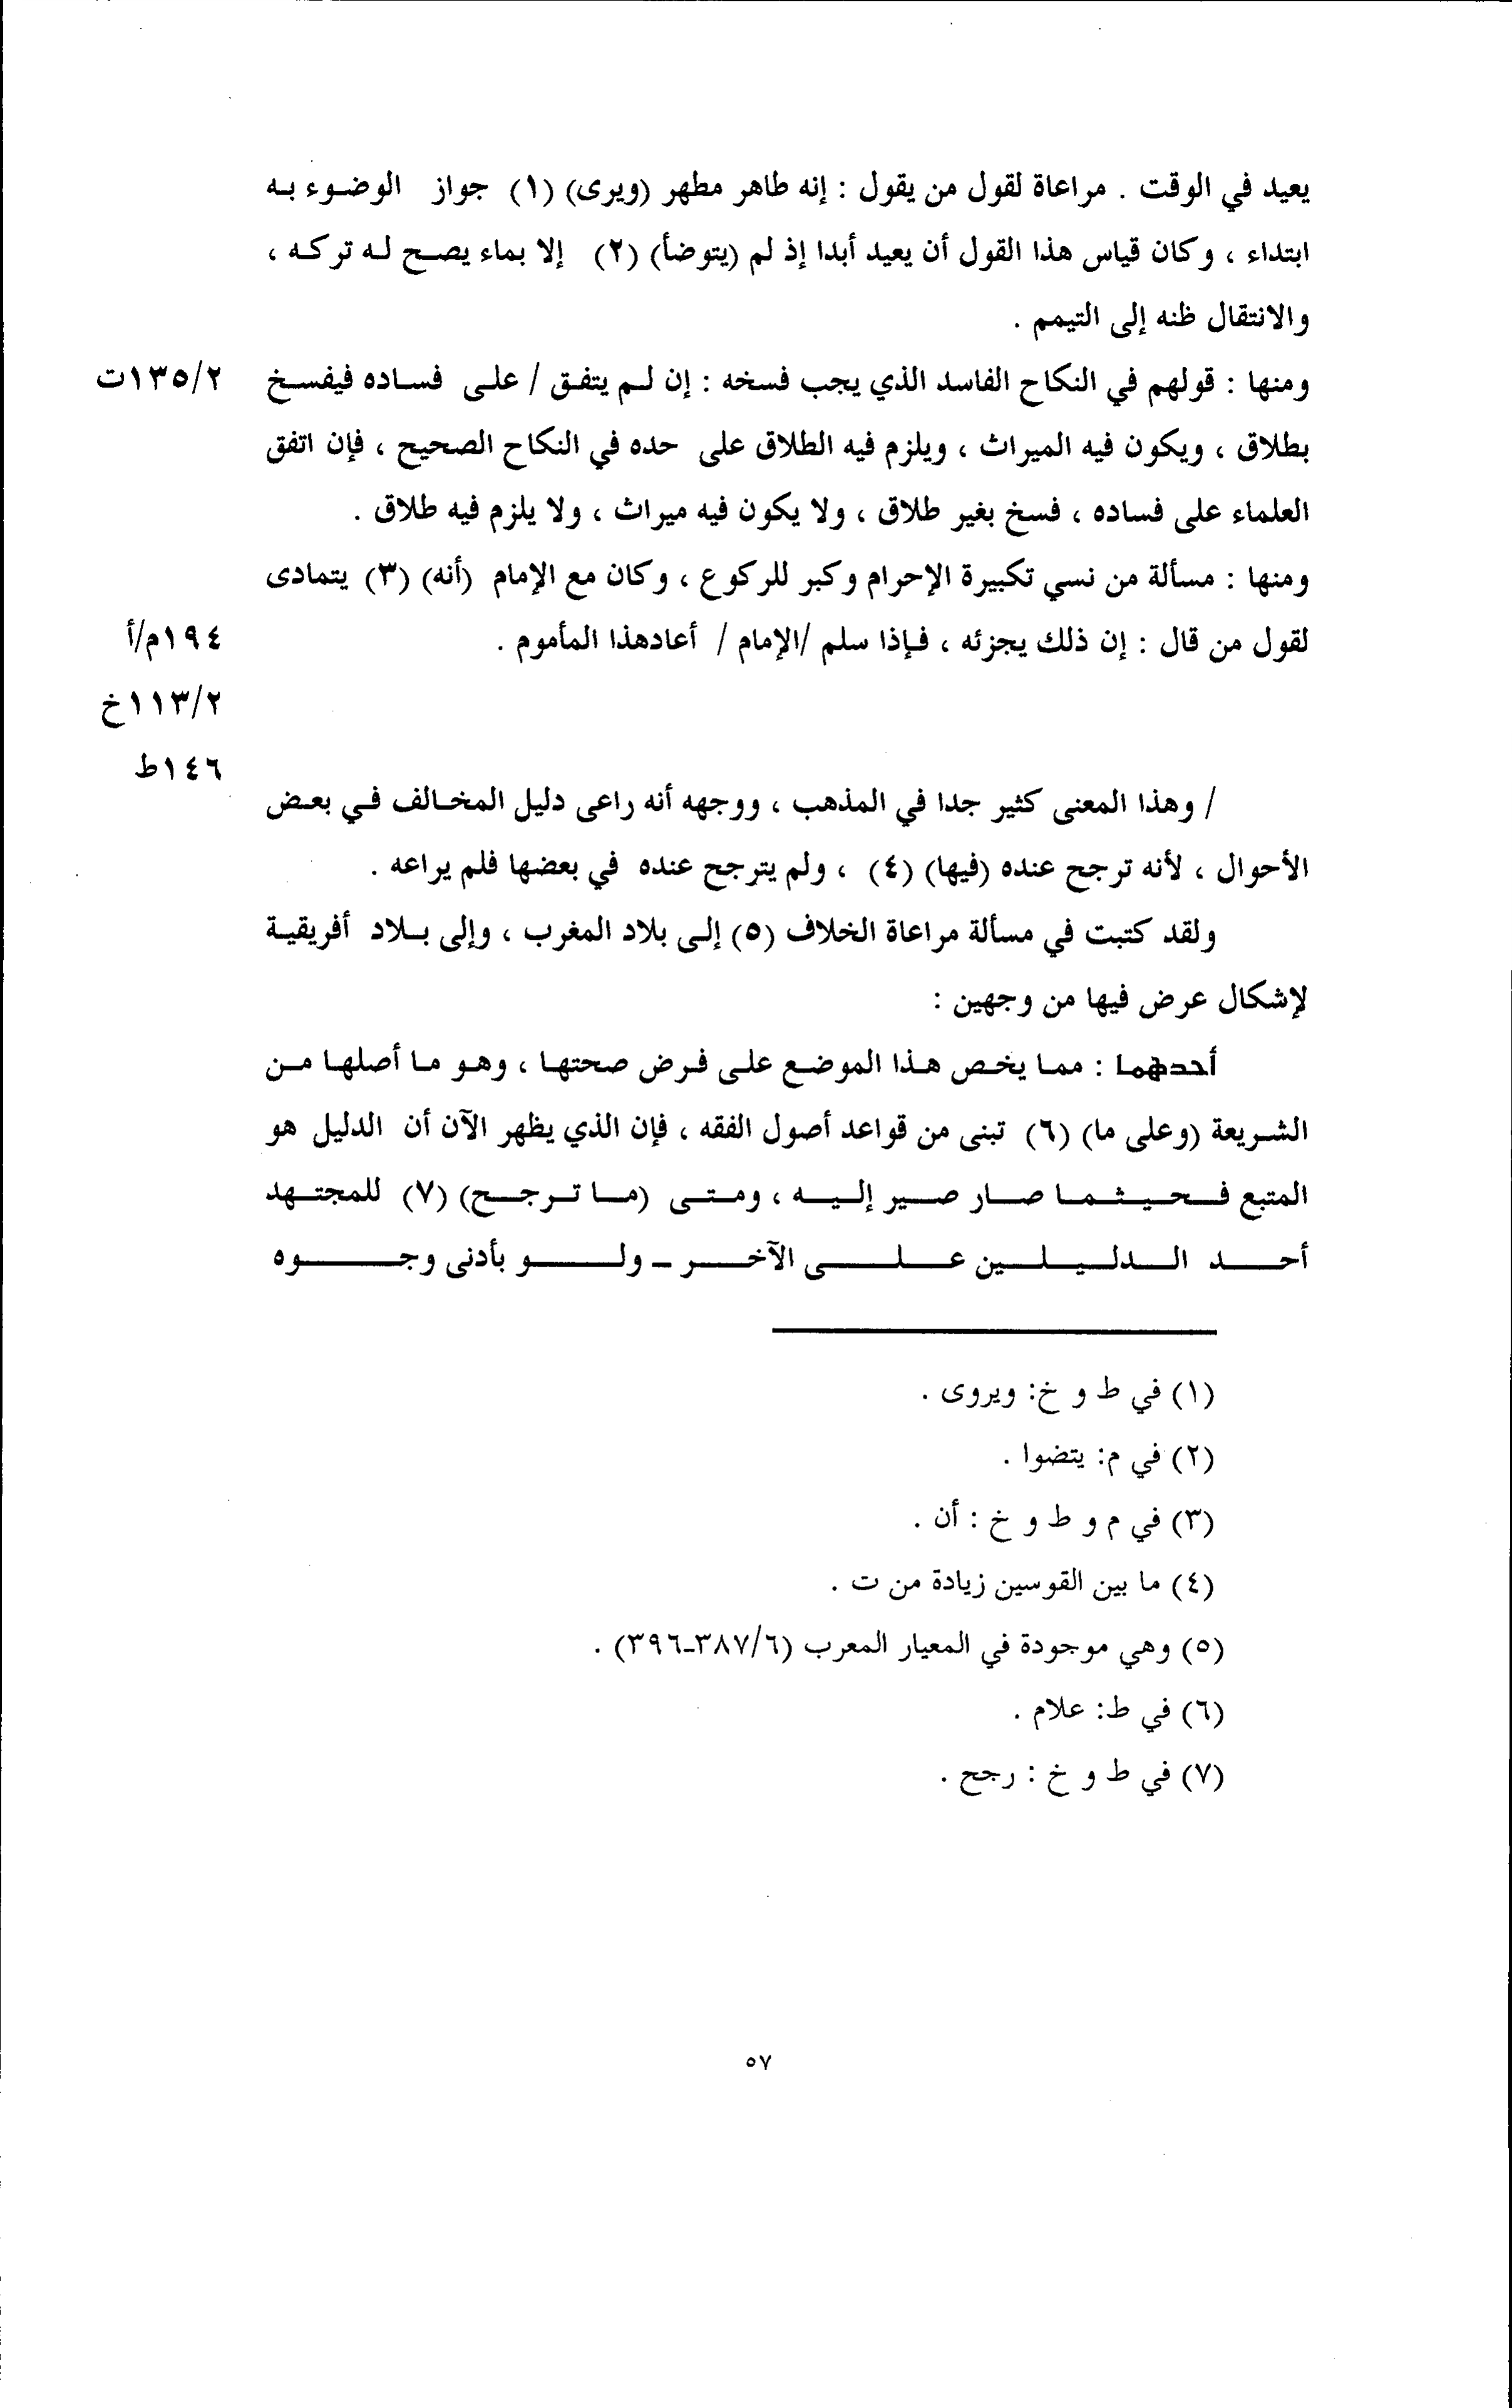 يعيد في الوقت . مراعاة لقول من يقول : إنه طاهر مطهر (ويرى) (١) جواز الوضوء به
ابتداء ، وكان قياس هذا القول أن يعيد أبدا إذ لم (يتوضأ) (٢) إلا بماء يصح له تركه ،
والانتقال ظنه إلى التيمم .
ومنها : قولهم في النكاح الفاسد الذي يجب فسخه : إن لم يتفق / على فساده فيفسخ ١٣٥/٢ت
بطلاق ، ويكون فيه الميراث ، ويلزم فيه الطلاق على حده في النكاح الصحيح ، فإن اتفق
العلماء على فساده ، فسخ بغير طلاق ، ولا يكون فيه ميراث ، ولا يلزم فيه طلاق .
ومنها : مسألة من نسي تكبيرة الإحرام وكبر للركوع ، وكان مع الإمام (أنه) (٣) يتمادى
لقول من قال : إن ذلك يجزئه ، فإذا سلم /الإمام / أعادهذا المأموم . ١٩٤م/أ
١١٣/٢خ
١٤٦ط
/ وهذا المعنى كثير جدا في المذهب ، ووجهه أنه راعى دليل المخالف في بعض
الأحوال ، لأنه ترجح عنده (فيها) (٤) ، ولم يترجح عنده في بعضها فلم يراعه .
ولقد كتبت في مسألة مراعاة الخلاف (٥) إلى بلاد المغرب ، وإلى بلاد أفريقية
لإشكال عرض فيها من وجهين :
أحدهما : مما يخص هذا الموضع على فرض صحتها ، وهو ما أصلها من
الشريعة (وعلى ما) (٦) تبنى من قواعد أصول الفقه ، فإن الذي يظهر الآن أن الدليل هو
المتبع فحيثما صار صير إليه ، ومتى (ما ترجح) (٧) للمجتهد
أحد الدليلين على الآخر - ولو بأدنى وجوه
(١) في ط و خ: ويروى .
(٢) في م: يتضوا .
(٣) في م و ط و خ : أن .
(٤) ما بين القوسين زيادة من ت .
(٥) وهي موجودة في المعيار المعرب (٣٨٧/٦-٣٩٦) .
(٦) في ط: علام .
(٧) في ط و خ : رجح .
٥٧